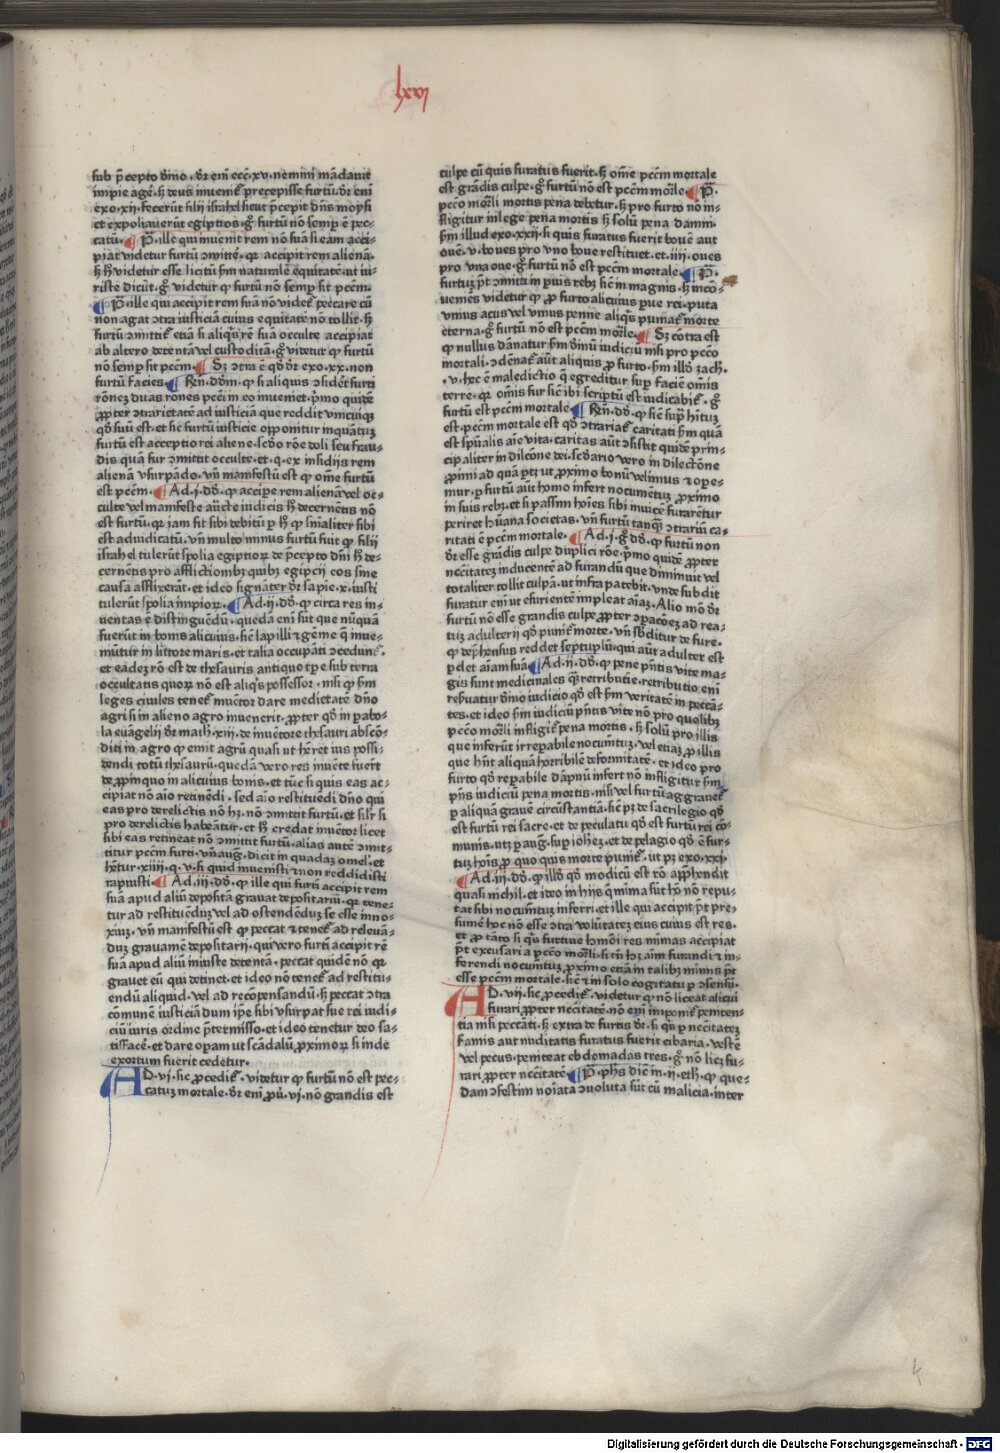 lxvj
sub p̄cepto dīno · dr̄ enī ecc̄ · xv · nemini mādauit
impie agē · ꝫ deus inuenit᷑ precepisse furtū · dr̄ enī
exo · xij · fecerūt filij israhel sicut p̄cepit dn̄s moysi
et expoliauerūt egiptios · gͦ furtū nō semꝑ ē pec-
catū · ¶ P̄ · ille qui inuenit rem nō suā si eam acci-
piat videtur furtū ɔmittē · qꝛ accipit rem alienā ·
ꝫ hͦ videtur esse licitū ẜm naturalē equitatē · ut iu-
riste dicūt · gͦ videtur ꝙ furtū nō semꝑ sit pccm̄ ·
¶ P̄ · ille qui accipit rem suā nō videt᷑ peccare cū
non agat ɔtra iusticiā cuius equitatē nō tollit · ꝫ
furtū ɔmittit᷑ etiā si aliqͥs rē suā occulte accipiat
ab altero detentā vel custoditā · gͦ videtur ꝙ furtū
nō semꝑ sit pccm̄ · ¶ Sꝫ ɔtra ē qd̄ dr̄ exo · xx · non
furtū facies · ¶ Rn̄ · dōm · ꝙ si aliquis ɔsidēt furti
rōnez duas rōnes pccī in eo inueniet · pͥmo quidē
ꝓpter ɔtrarietatē ad iusticiā que reddit vnicuiqꝫ
qd̄ suū est · et sic furtū iusticie opponitur inquātuꝫ
furtū est acceptio rei aliene · scd̄o rōe doli seu frau-
dis quā fur ɔmittit occulte · et · q · ex insidijs rem
alienā vsurpādo · vn̄ manifestū est ꝙ om̄e furtū
est pccm̄ · ¶ Ad · j · dō · ꝙ accipe rem alienā vel oc-
culte vel manifeste auc̄te iudicis ꝫ decernetis nō
est furtū · qꝛ jam fit sibi debitū ꝑ ꝫ ꝙ sn̄ialiter sibi
est adiudicatū · vn̄ multo minus furtū fuit ꝙ filij
israhel tulerūt spolia egiptioꝝ de p̄cepto dn̄i ꝫ de-
cernētis pro afflictiōibꝫ quibꝫ egipcij eos sine
causa afflixerāt · et ideo signāter dr̄ sapiē · x · iusti
tulerūt spolia impioꝝ · ¶ Ad · ij · dō · ꝙ circa res in-
uentas ē distinguēdū · quedā enī sūt que nūquā
fuerūt in bonis alicuius · sic̄ lapilli ⁊ gēme q̄ inue-
niūtur in littore maris · et talia occupāti ɔcedunt᷑ ·
et eadeꝫ rō est de thesauris antiquo tꝑe sub terra
occultatis quoꝝ nō est aliqͥs possessor · nisi ꝙ ẜm
leges ciuiles tenet᷑ inuētor dare medietatē dn̄o
agri si in alieno agro inuenerit · ꝓpter qd̄ in ꝑabo-
la euāgelij dr̄ math · xiij · de inuētore thesauri abscō-
diti in agro ꝙ emit agrū quasi ut hēret ius possi-
dendi totū thesaurū · quedā vero res inuēte fuerūt
de ꝓpinquo in alicuius bonis · et tūc si quis eas ac-
cipiat nō aīo retinēdi · sed aīo restituēdi dn̄o qui
eas pro derelictis nō hꝫ · nō ɔmittit furtū · et silr̄ si
pro derelictis habeātur · et ꝫ credat inuētor licet
sibi eas retineat nō ɔmittit furtū · alias autē ɔmit-
titur pccm̄ furti · vn̄ auḡ · dicit in quadaꝫ omel̄ · et
hētur · xiiij · q · v · si quid inuenisti ⁊ non reddidisti
rapuisti · ¶ Ad · iij · dō · ꝙ ille qui furti accipit rem
suā apud aliū depositā grauat depositariū · qꝛ tene-
tur ad restituēduꝫ vel ad ostendēduꝫ se esse inno-
xiuꝫ · vn̄ manifestū est ꝙ peccat ⁊ tenet᷑ ad releuā-
duꝫ grauamē depositarij · qui vero furti accipit rē
suā apud aliū iniuste detentā · peccat quidē nō qꝛ
grauet eū qui detinet · et ideo nō tenet᷑ ad restitu-
endū aliquid · vel ad recōpensandū · ꝫ peccat ɔtra
comunē iusticiā dum ip̄e sibi vsurpat sue rei iudi-
ciū iuris ordine p̄termisso · et ideo tenetur deo sa-
tisfacē · et dare operam ut scādalū ꝓximoꝝ si inde
exortum fuerit cedetur ·
AD · vj · sic ꝓcedit᷑ · videtur ꝙ furtū nō est pec-
catuꝫ mortale · dr̄ enī ꝓu · vj · nō grandis est
culpe cū quis furatus fuerit · ꝫ om̄e pccm̄ mortale
est grādis culpe · gͦ furtū nō est pccm̄ mort̄le · ¶ P̄ ·
pccō mort̄li mortis pena debetur · ꝫ pro furto nō in-
fligitur in lege pena mortis ꝫ solū pena damni ·
ẜm illud exo · xxij · si quis furatus fuerit bouē aut
ouē · v · boues pro vno boue restituet · et · iiij · oues
pro vna oue · gͦ furtū nō est pccm̄ mortale · ¶ P̄ ·
furtuꝫ p̄t ɔmitti in ꝑuis rebꝫ sic̄ in magnis · ꝫ inco-
ueniēs videtur ꝙ ꝓ furto alicuius ꝑue rei · puta
vnius acus vel vnius penne aliqͥs puniat᷑ morte
eterna · gͦ furtū nō est pccm̄ mort̄le · ¶ Sꝫ cōtra est
ꝙ nullus dānatur ẜm dīnū iudiciū nisi pro pccō
mortali · ɔdēnat᷑ aūt aliquis ꝓ furto · ẜm illd̄ zach̄ ·
· v · hec ē maledictio q̄ egreditur suꝑ faciē om̄is
terre · qꝛ om̄is fur sic̄ ibi scriptū est iudicabit᷑ · gͦ
furtū est pccm̄ mortale · ¶ Rn̄ · dō · ꝙ sic̄ supͣ hītuꝫ
est · pccm̄ mortale est qd̄ ɔtrariat᷑ caritati ẜm quā
est sp̄ualis aīe vita · caritas aūt ɔsistit quidē prin-
cipaliter in dilcōne dei · scd̄ario vero in dilectōne
ꝓximi ad quā ꝑtꝫ ut ꝓximo bonū velimus ⁊ oꝑe-
mur · ꝑ furtū aūt homo infert nocumētuꝫ ꝓximo
in suis rebꝫ · et si passim hoīes sibi inuicē furarētur
periret hūana societas · vn̄ furtū tanqꝫ ɔtrariū ca-
ritati ē pccm̄ mortale · ¶ Ad · j · gͦ dō · ꝙ furtū non
dr̄ esse grādis culpe duplici rōe · pͥmo quidē ꝓpter
nccītateꝫ inducentē ad furandū que diminuit vel
totaliter tollit culpā · ut infra patebit · vnde subdit
furatur enī ut esurientē impleat aīaꝫ · Alio mō dr̄
furtū nō esse grandis culpe ꝓpter ɔꝑacōeꝫ ad rea-
tuꝫ adulterij qd̄ punit᷑ morte · vn̄ sb̄ditur de fure ·
ꝙ dep̄hensus reddet septuplū · qui aūt adulter est
ꝑdet aīam suā · ¶ Ad · ij · dō · ꝙ pene p̄ntis vite ma-
gis sunt medicinales qͣꝫ retributie · retributio enī
reẜuatur dīno iudicio qd̄ est ẜm veritatē in peccā-
tes · et ideo ẜm iudiciū p̄ntis vite nō pro quolibꝫ
pccō mort̄li infligit᷑ pena mortis · ꝫ solū pro illis
que inferūt irrepabile nocum̄tuꝫ · vel etiaꝫ ꝓ illis
que hn̄t aliquā horribilē deformitatē · et ideo pro
furto qd̄ reꝑabile dāpnū infert nō infligitur ẜm
p̄ns iudiciū pena mortis · nisi vel furtū aggrauet᷑
ꝑ aliquā grauē circūstantiā · sic̄ pꝫ de sacrilegio qd̄
est furtū rei sacre · et de peculatu qd̄ est furtū rei cō-
munis · ut pꝫ ꝑ auḡ · suꝑ ioh̄eꝫ · et de pelagio qd̄ ē fur-
tuꝫ hoīs ꝓ quo quis morte punit᷑ · ut pꝫ exo · xxj ·
¶ Ad · iij · dō · ꝙ illd̄ qd̄ modicū est rō app̄hendit
quasi nichil · et ideo in hijs q̄ minia sūt hō nō repu-
tat sibi nocum̄tuꝫ inferri · et ille qui accipit p̄t pre-
sumē hoc nō esse ɔtra volūtateꝫ eius cuius est res ·
et ꝓ tāto si qͥs furtiue hmōi res minias accipiat
p̄t excusari a pccō mort̄li · si tn̄ hꝫ aīm furandi ⁊ in-
ferendi nocum̄tuꝫ ꝓximo etiā in talibꝫ minīs p̄t
esse pccm̄ mortale · sic̄ ⁊ in solo cogitatu ꝑ ɔsensū ·
AD · vij · sic ꝓcedit᷑ · videtur ꝙ nō liceat alicui
furari ꝓpter nccītatē · nō enī imponit᷑ peniten-
tia nisi peccāti · ꝫ extra de furtis dr̄ · si qͥs ꝑ nccītateꝫ
famis aut nuditatis furatus fuerit cibaria · vestē
vel pecus · peniteat ebdomadas tres · gͦ nō licꝫ fu-
rari ꝓpter nccītatē · ¶ P̄ · ph̄s dic̄ in · ij · eth̄ · ꝙ que-
dam ɔfestim noīata ɔuoluta sūt cū malicia · inter
4
Digitalisierung gefördert durch die Deutsche Forschungsgemeinschaft - DFG